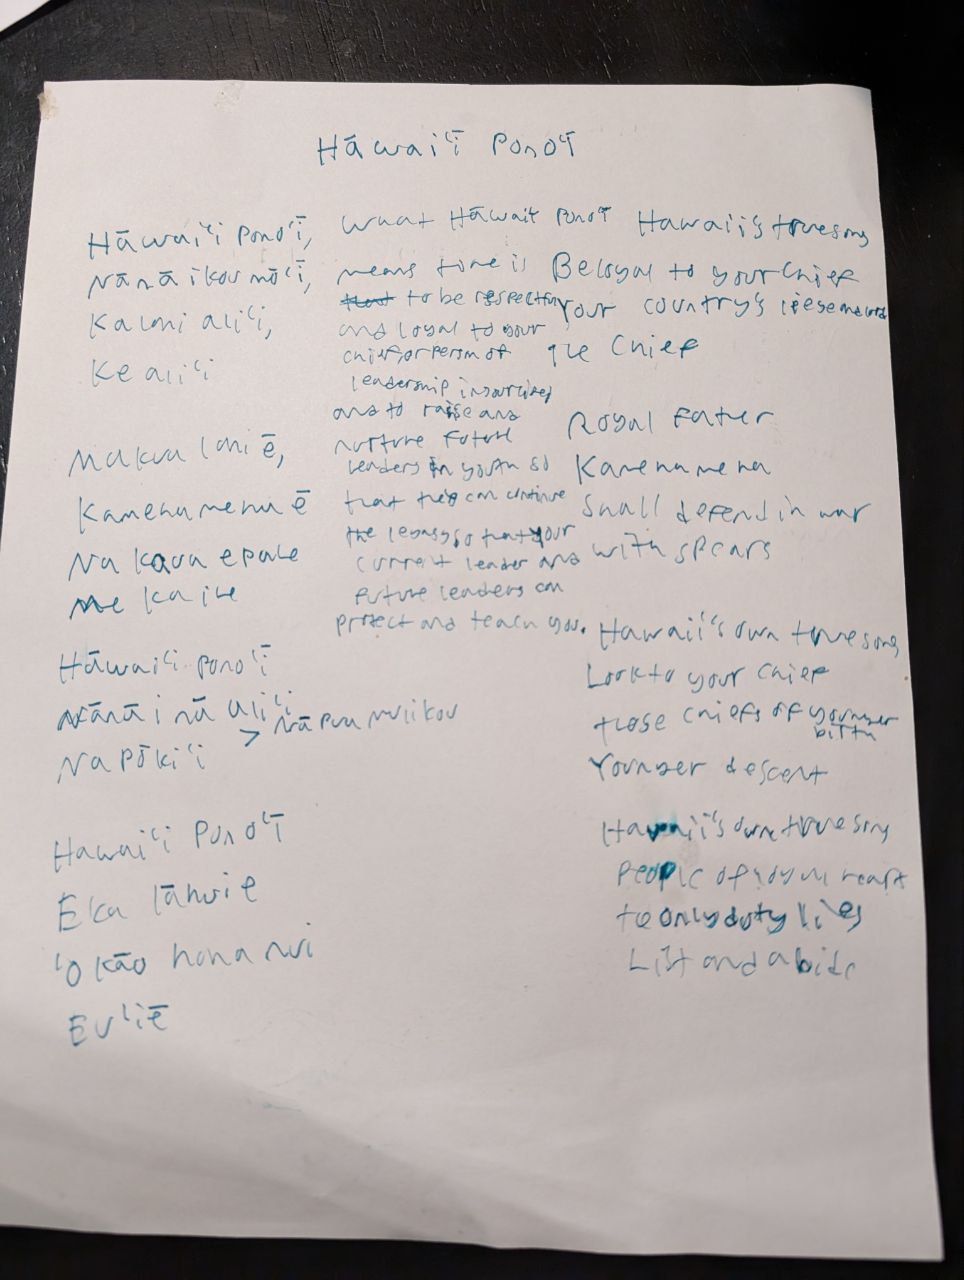 Hāwai'ī Ponoʻī
Hāwai'i Pono'ī,
Nānā ikou mō'ī,
Kalani ali'i,
Ke ali'i
Makua lani ē,
Kamehameha ē
Na kaua e pale
Me ka ihe
Hāwai'i pono'ī
Nānā i nā ali'i
> Nā pua muli kou
Na pōki'i
Hawai'i Pono'ī
E ka lāhui e
'O kāo hana nui
E u'iē
What Hāwai'i Pono'ī
means to me is
to be respectful
and loyal to your
chief, or person of
leadership in
and to raise and
nurture future
leaders in youth so
that they can continue
the legasy so that your
current leader and
future leaders can
protect and teach you.
Hawaii's true song
Be loyal to your chief
Your country's liege and lord
The Chief
Royal Father
Kamehameha
Shall defend in war
with spears
Hawaii's own true song
Look to your chief
those chiefs of younger
birth
Younger descent
Hawaii's own true song
People of loyal heart
the only duty lies
List and abide